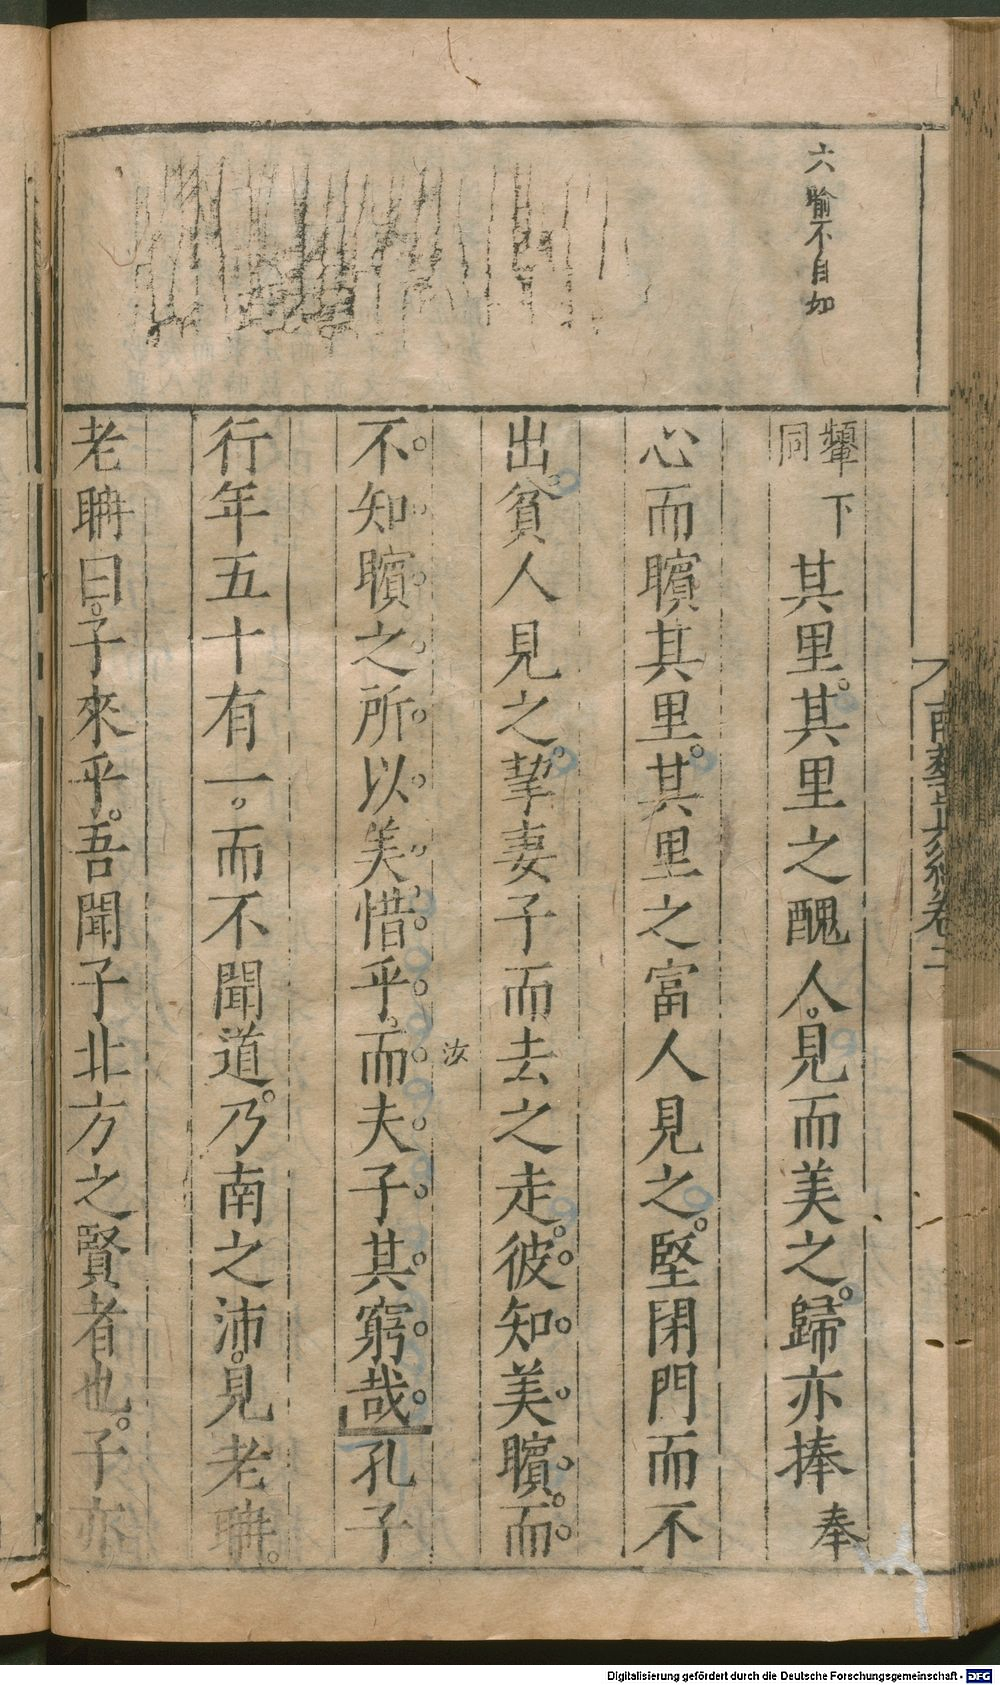 六喻不自如
顰下同其里。其里之醜人。見而美之。歸亦捧奉
心而矉其里。其里之富人見之。堅閉門而不
出。貧人見之。挈妻子而去之走。彼知美矉。而
不知矉之所以美。惜乎。而夫子其窮哉。孔子
汝
行年五十有一。而不聞道。乃南之沛。見老聃。
老聃曰。子來乎。吾聞子北方之賢者也。子亦
南華真經卷二
Digitalisierung gefördert durch die Deutsche Forschungsgemeinschaft - DFG